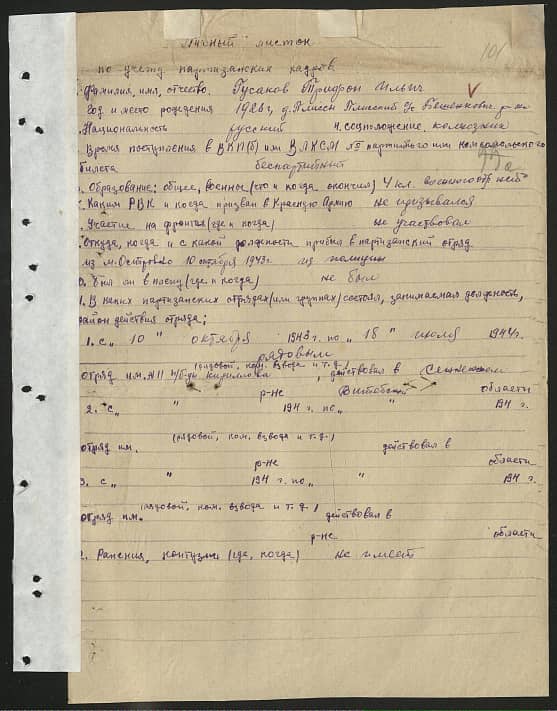 Личный листок 101
по учету партизанских кадров
Фамилия, имя, отчество. Гусаков Трифон Ильич
Год и место рождения 1926г, д. Плиссы
Национальность русский 4. соцположение колхозник
Время поступления в ВКП(б) или ВЛКСМ № партийного или комсомольского
билета беспартийный
Образование: общее, военное (что и когда окончил) 4 кл. военного нет
Каким РВК и когда призван в Красную Армию не призывался
Участие на фронтах (где и когда) не участвовал
Откуда, когда и с какой должности прибыл в партизанский отряд
из м. Островно 10 октября 1943г. из полиции
был ли в плену (где и когда) не был
1. В каких партизанских отрядах (или группах) состоял, занимаемая должность,
район действия отряда;
1. с „ 10 " октября 1943г. по „ 18 " июля 1944г.
рядовым
(рядовой, ком. взвода и т.д.)
отряд им. Кириллова, действовал в Сенненском
р-не Витебской области
2. с „ " 194 г. по „ " 194 г.
(рядовой, ком. взвода и т.д.)
отряд им. действовал в
р-не области
3. с „ " 194 г. по „ " 194 г.
(рядовой, ком. взвода и т.д.)
отряд им. действовал в
р-не области
2. Ранения, контузии (где, когда) не имеет